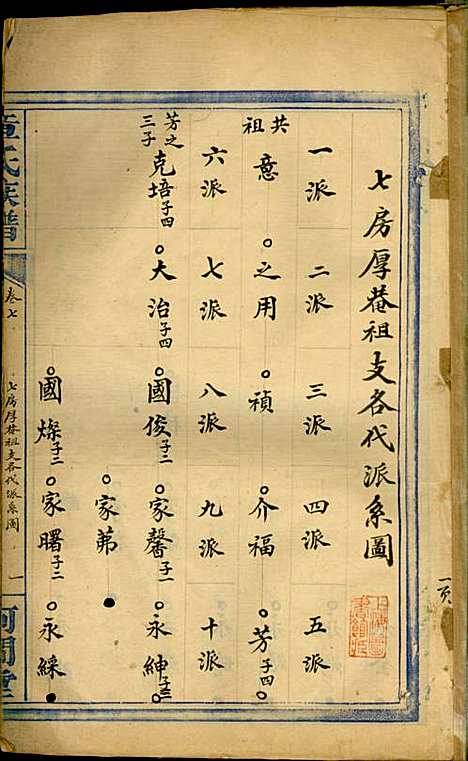 七房厚菴祖支各代派系圖
一派 二派 三派 四派 五派
共祖 意 之用 禎 介福 芳子四
六派 七派 八派 九派 十派
芳之三子 克培子四 大治子四 國俊子二 家馨子二 永紳子三
家弟
國燦子二 家曙子二 永綵
氏族譜
卷七
七房厚菴祖支各代派系圖
一
一頁